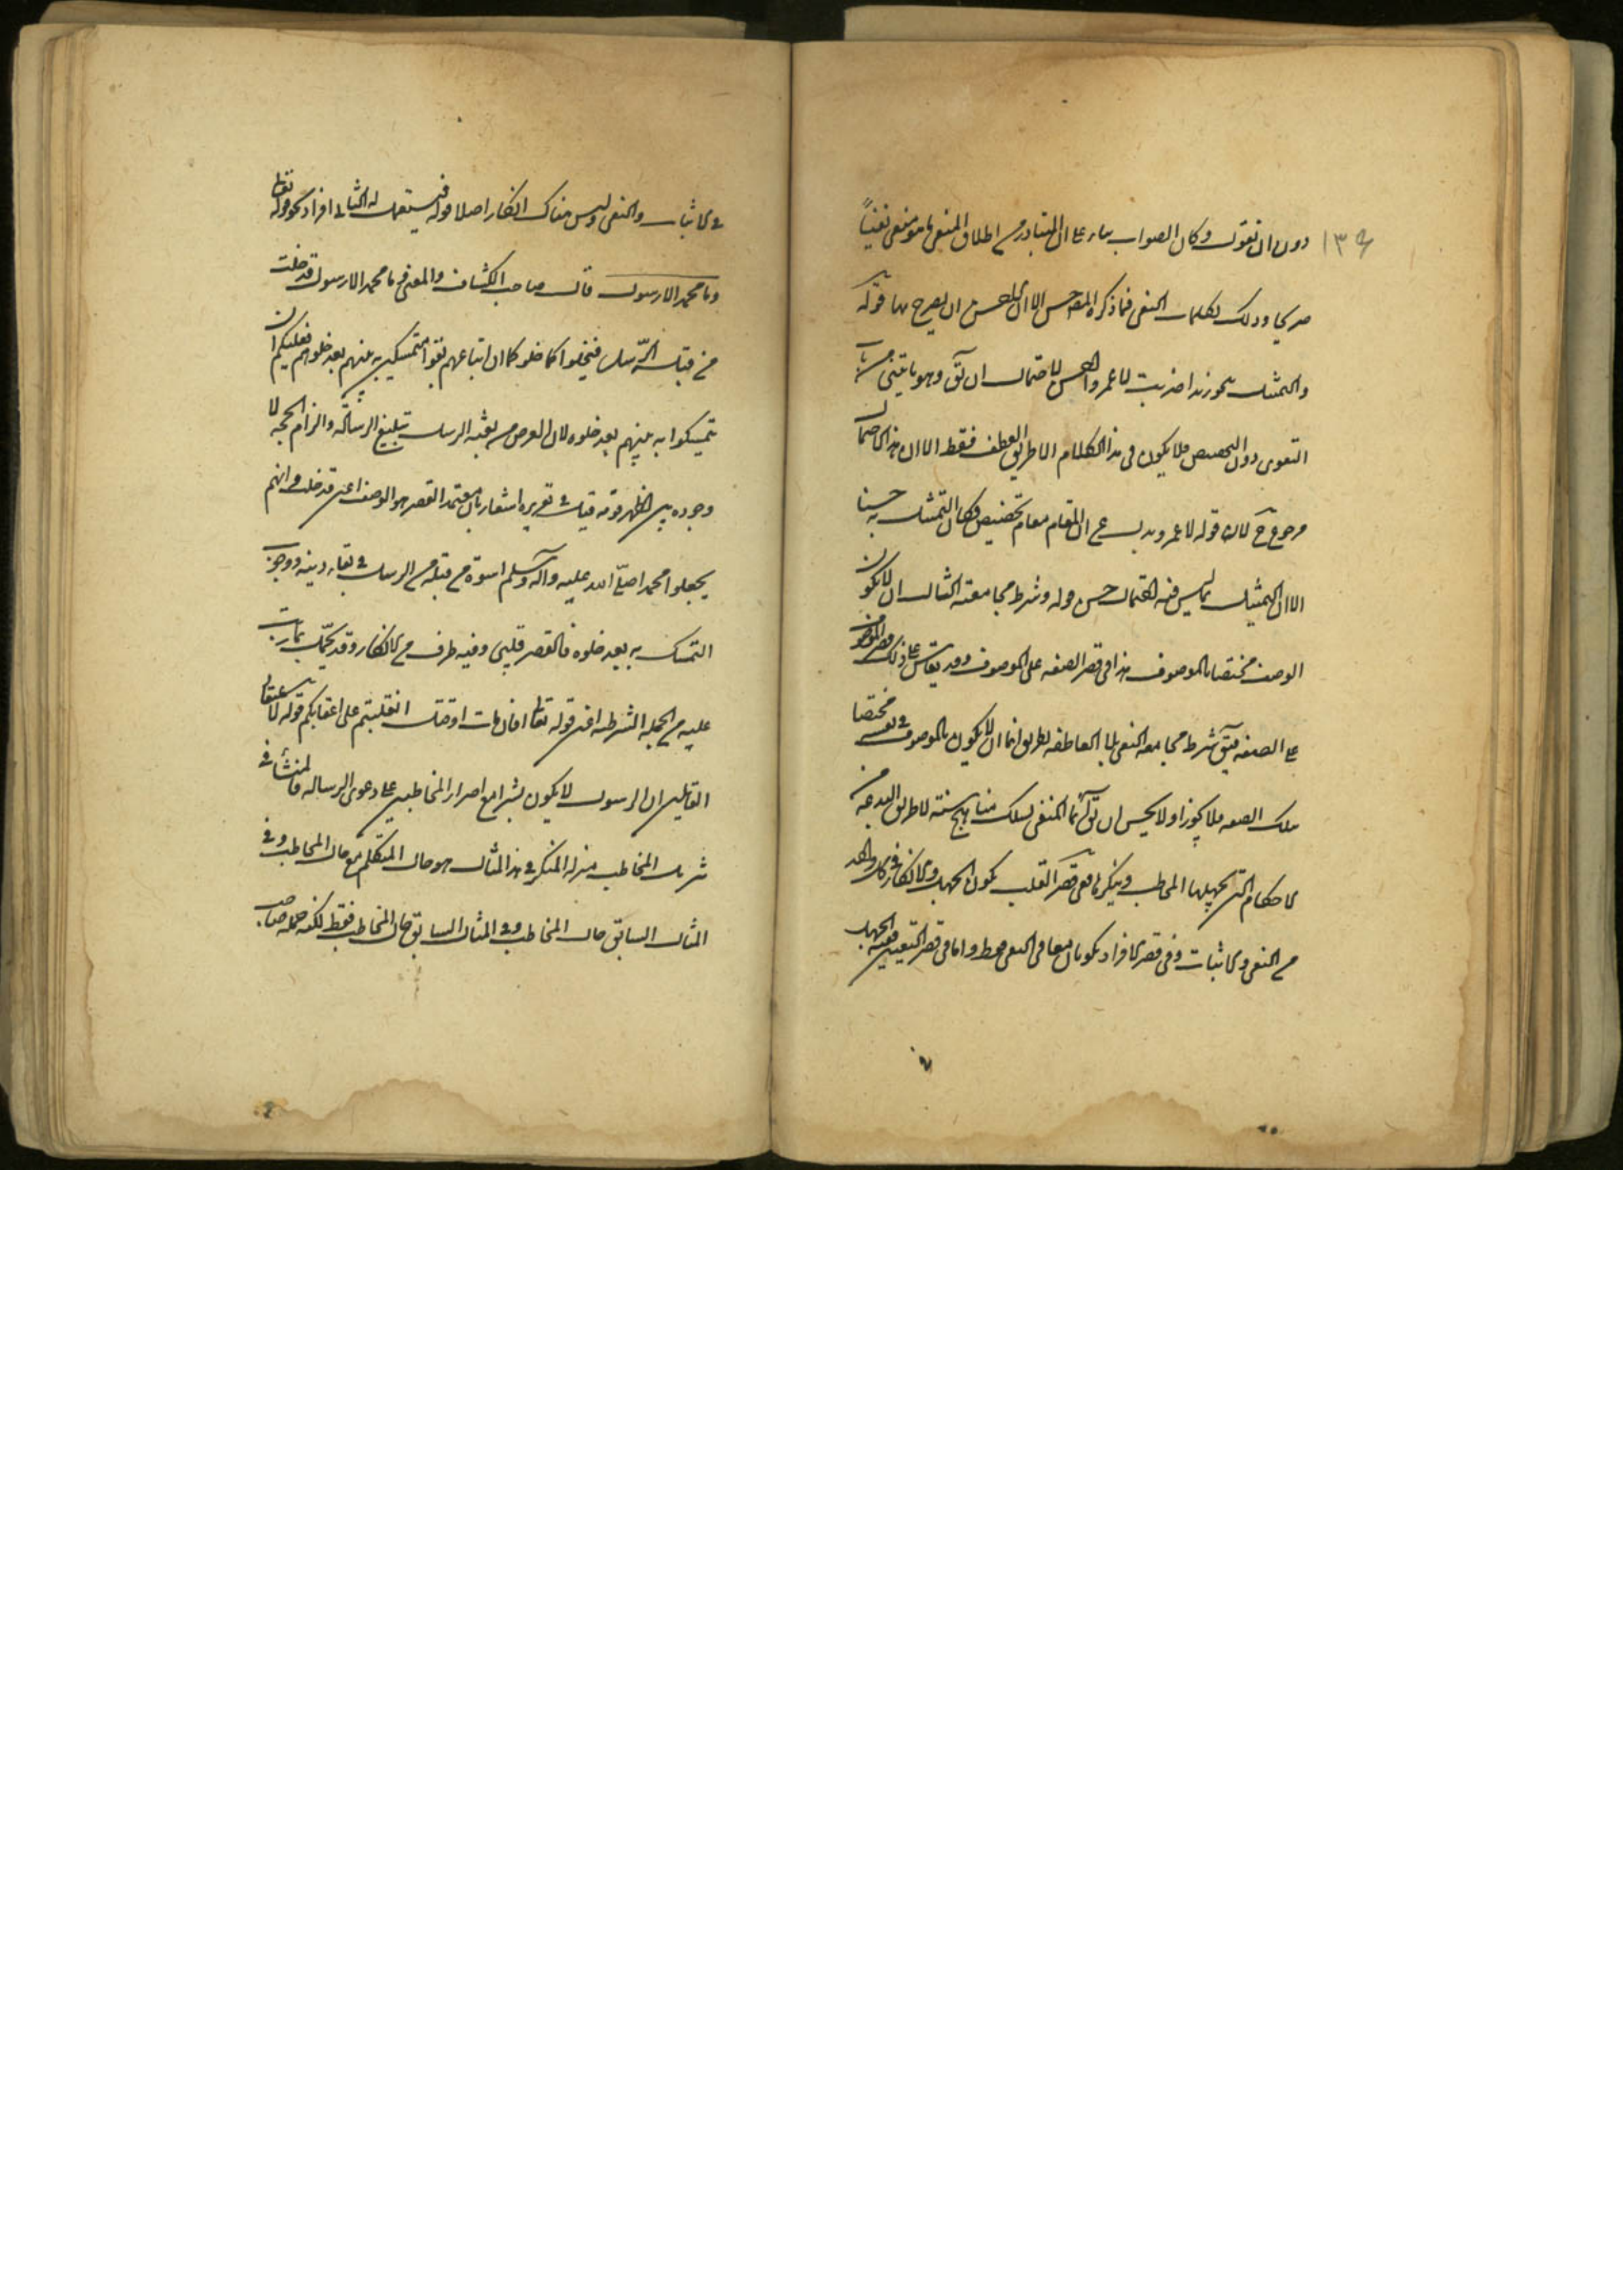 ١٣٤
دون ان نقول وكان الصواب بناء على ان المتبادر من اطلاق المنفى ما هو منفى نفيا
صريحا وذلك بكلمات النفى فما ذكره المص حسن الا ان الاحسن ان يصرح بها قوله
والتمثيل بنحو زيدا ضربت لا عمروا ليس لاحتمال ان يق وهو ياتينى من باب
التقوى دون التخصيص فلا يكون فى هذا الكلام الا طريق العطف فقط الا ان هذا الاحتمال
مرجوح ح لان قوله لا عمرو يدل على ان المقام مقام تخصيص فكان التمثيل به حسنا
الا ان التمثيل بما ليس فيه احتمال حسن قوله وشرط مجامعته الثالث ان لا يكون
الوصف مختصا بالموصوف هذا فى قصر الصفه على الموصوف وقد يقاس على ذلك قصر الموصوف
على الصفه فيق شرط مجامعه النفى بلا العاطفه لطريق انما ان لا يكون الموصوف فى نفسه مختصا
بتلك الصفه فلا يجوز او لا يحسن ان يق انما المتقى يسلك مناهج السنه لا طريق البدعه من
الاحكام التى يجهلها المخاطب وينكرها ففى قصر القلب يكون الجهل والانكار فى كل واحد
من النفى والاثبات وفى قصر الافراد يكونان معا فى النفى فقط واما فى قصر التعيين ففيه الجهل
فى الاثبات والنفى وليس هناك انكار اصلا قوله فيستعمل له الثانى افرادا نحو قوله تعالى
وما محمد الا رسول قال صاحب الكشاف والمعنى وما محمد الا رسول قد خلت
من قبله الرسل فيخلوا كما خلوا كما ان اتباعهم بقوا متمسكين بدينهم بعد خلوهم فعليكم ان
تتمسكوا بدينهم بعد خلوه لان الغرض من بعثه الرسل تبليغ الرساله والزام الحجه لا
وجوده بين اظهر قومه قيل فى تقريره اشعار بان معتمد القصر هو الوصف اعنى قد خلت وانهم
يجعلوا محمدا صلى الله عليه وآله وسلم اسوة من قبله من الرسل فى بقاء دينه ووجوب
التمسك به بعد خلوه فالقصر قلبى وفيه طرف من الانكار وقد يحمل بما ترتب
عليه من الجمله الشرطيه اعنى قوله تعالى افان مات او قتل انقلبتم على اعقابكم قوله لاعتقاد
القائلين ان الرسول لا يكون بشرا مع اصرار المخاطبين على دعوى الرساله فالمنشأ فى
تنزيل المخاطب منزله المنكر فى هذا المثال هو حال المتكلم مع حال المخاطب وفى
المثال السابق حال المخاطب وفى المثال السابق حال المخاطب فقط لكنه جمله صاحب